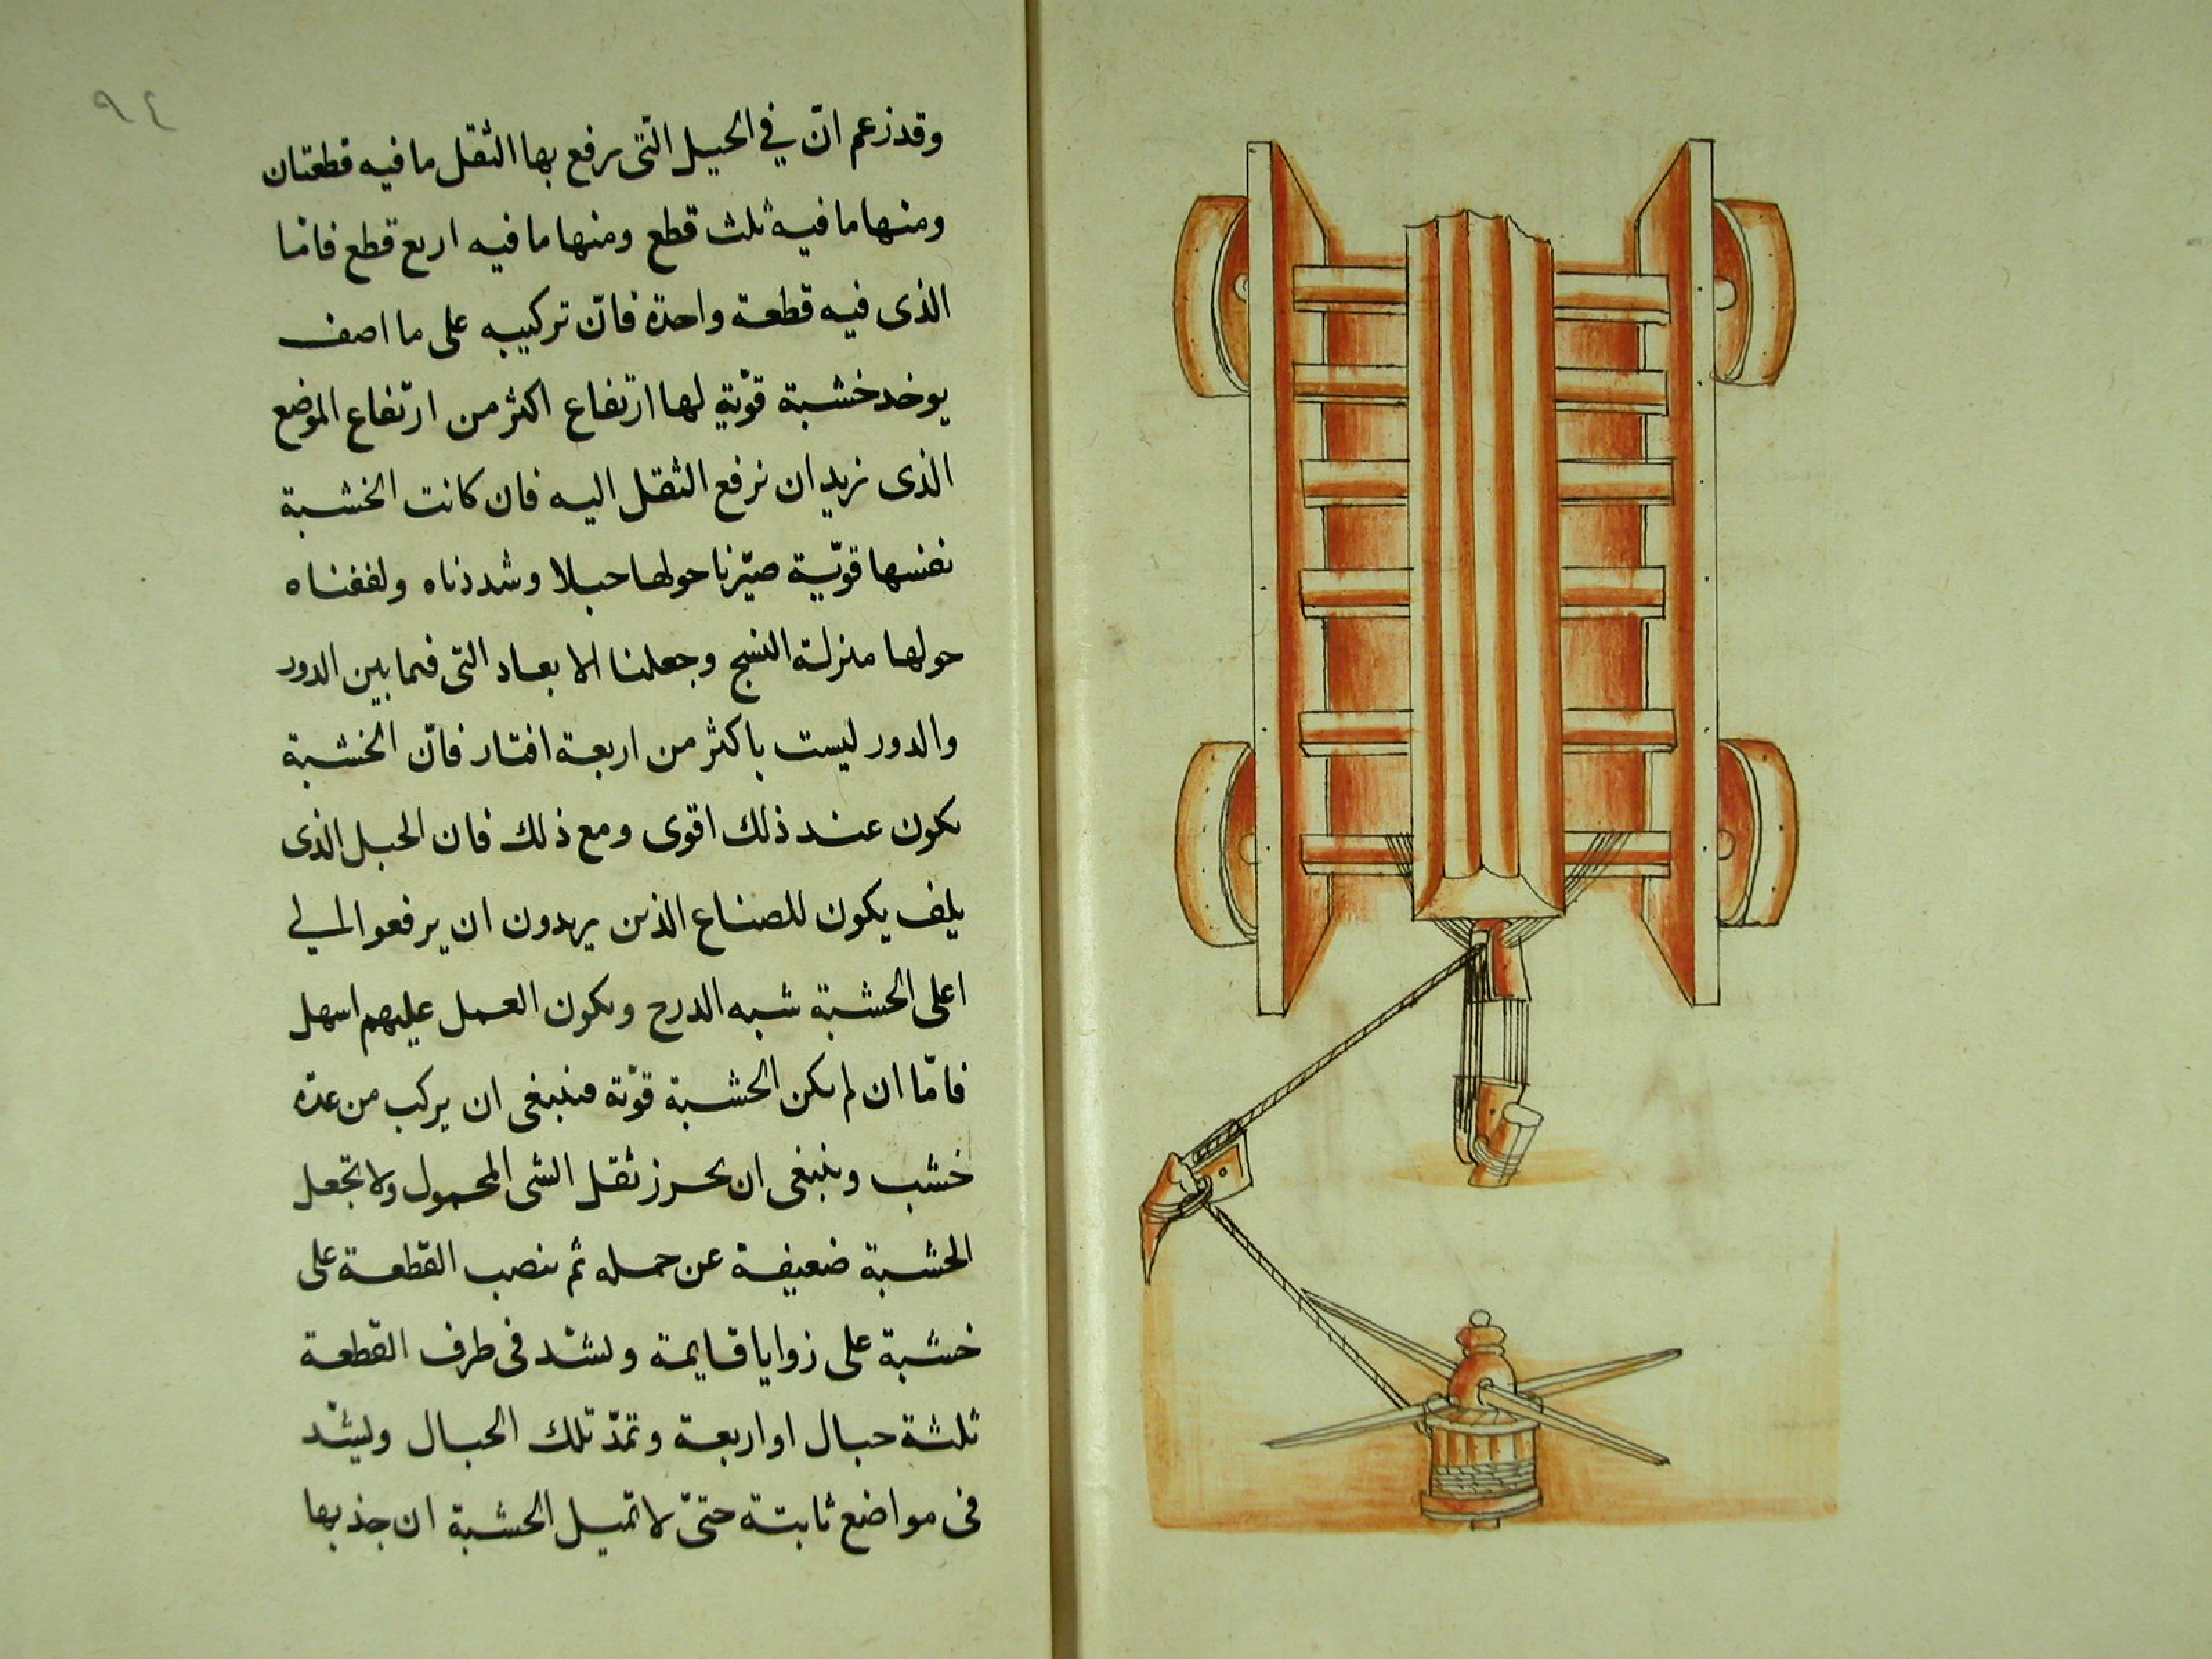 ٩٤
وقد زعم انّ في الحيل الّتى يرفع بها الثقل ما فيه قطعتان
ومنها ما فيه ثلث قطع ومنها ما فيه اربع قطع فامّا
الذى فيه قطعة واحدة فانّ تركيبه على ما اصف
يوخد خشبة قوّية لها ارتفاع اكثر من ارتفاع الموضع
الذى نريد ان نرفع الثقل اليه فان كانت الخشبة
نفسها قوّيّة صيّرنا حولها حبلا وشددناه ولففناه
حولها منزلة النسج وجعلنا الابعاد التى فيما بين الدور
والدور ليست باكثر من اربعة افتار فانّ الخشبة
يكون عند ذلك اقوى ومع ذلك فان الحبل الذى
يلف يكون للصناع الذين يريدون ان يرفعوا الى
اعلى الخشبة شبه الدرج ويكون العمل عليهم اسهل
فامّا ان لم يكن الخشبة قوّية فينبغى ان يركب من عدّة
خشب وينبغى ان يحرز ثقل الشى المحمول ولا تجعل
الخشبة ضعيفة عن حمله ثم ينصب القطعة على
خشبة على زوايا قايمة ويشدّ فى طرف القطعة
ثلثة حبال او اربعة وتمدّ تلك الحبال ويشدّ
فى مواضع ثابتة حتىّ لا تميل الخشبة ان جذبها